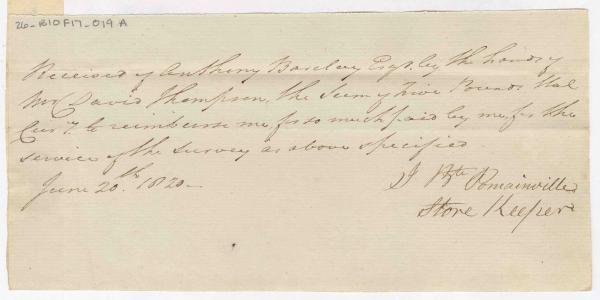 26-B10F17-019 A
Received of Anthony Barclay Esqr. by the hands of
Mr. David Thompson, the Sum of Five Pounds Hal
Curr.y. to reimburse me for so much paid by me for the
service of the survey as above specified.
June 20th. 1820—
J Bte Romainville
Store Keeper